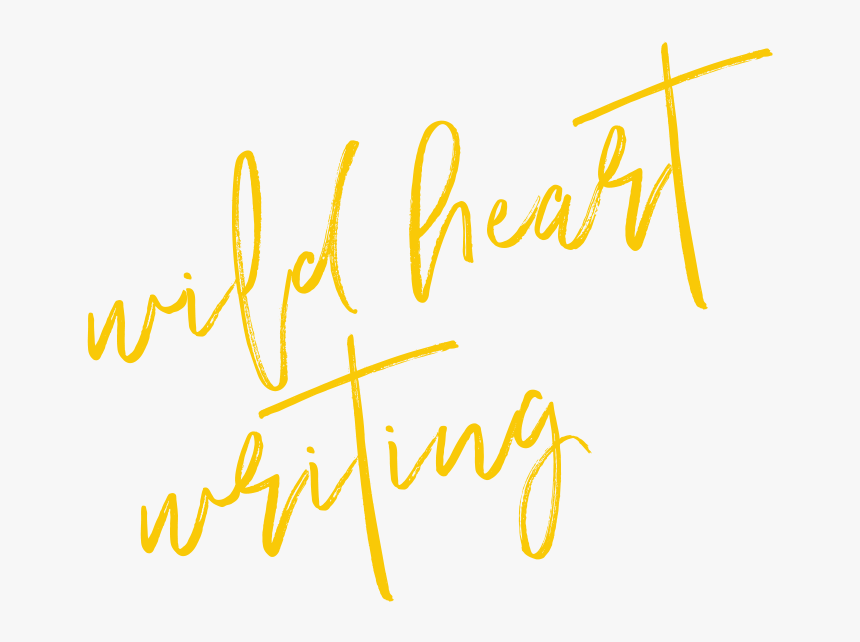 wild heart
writing